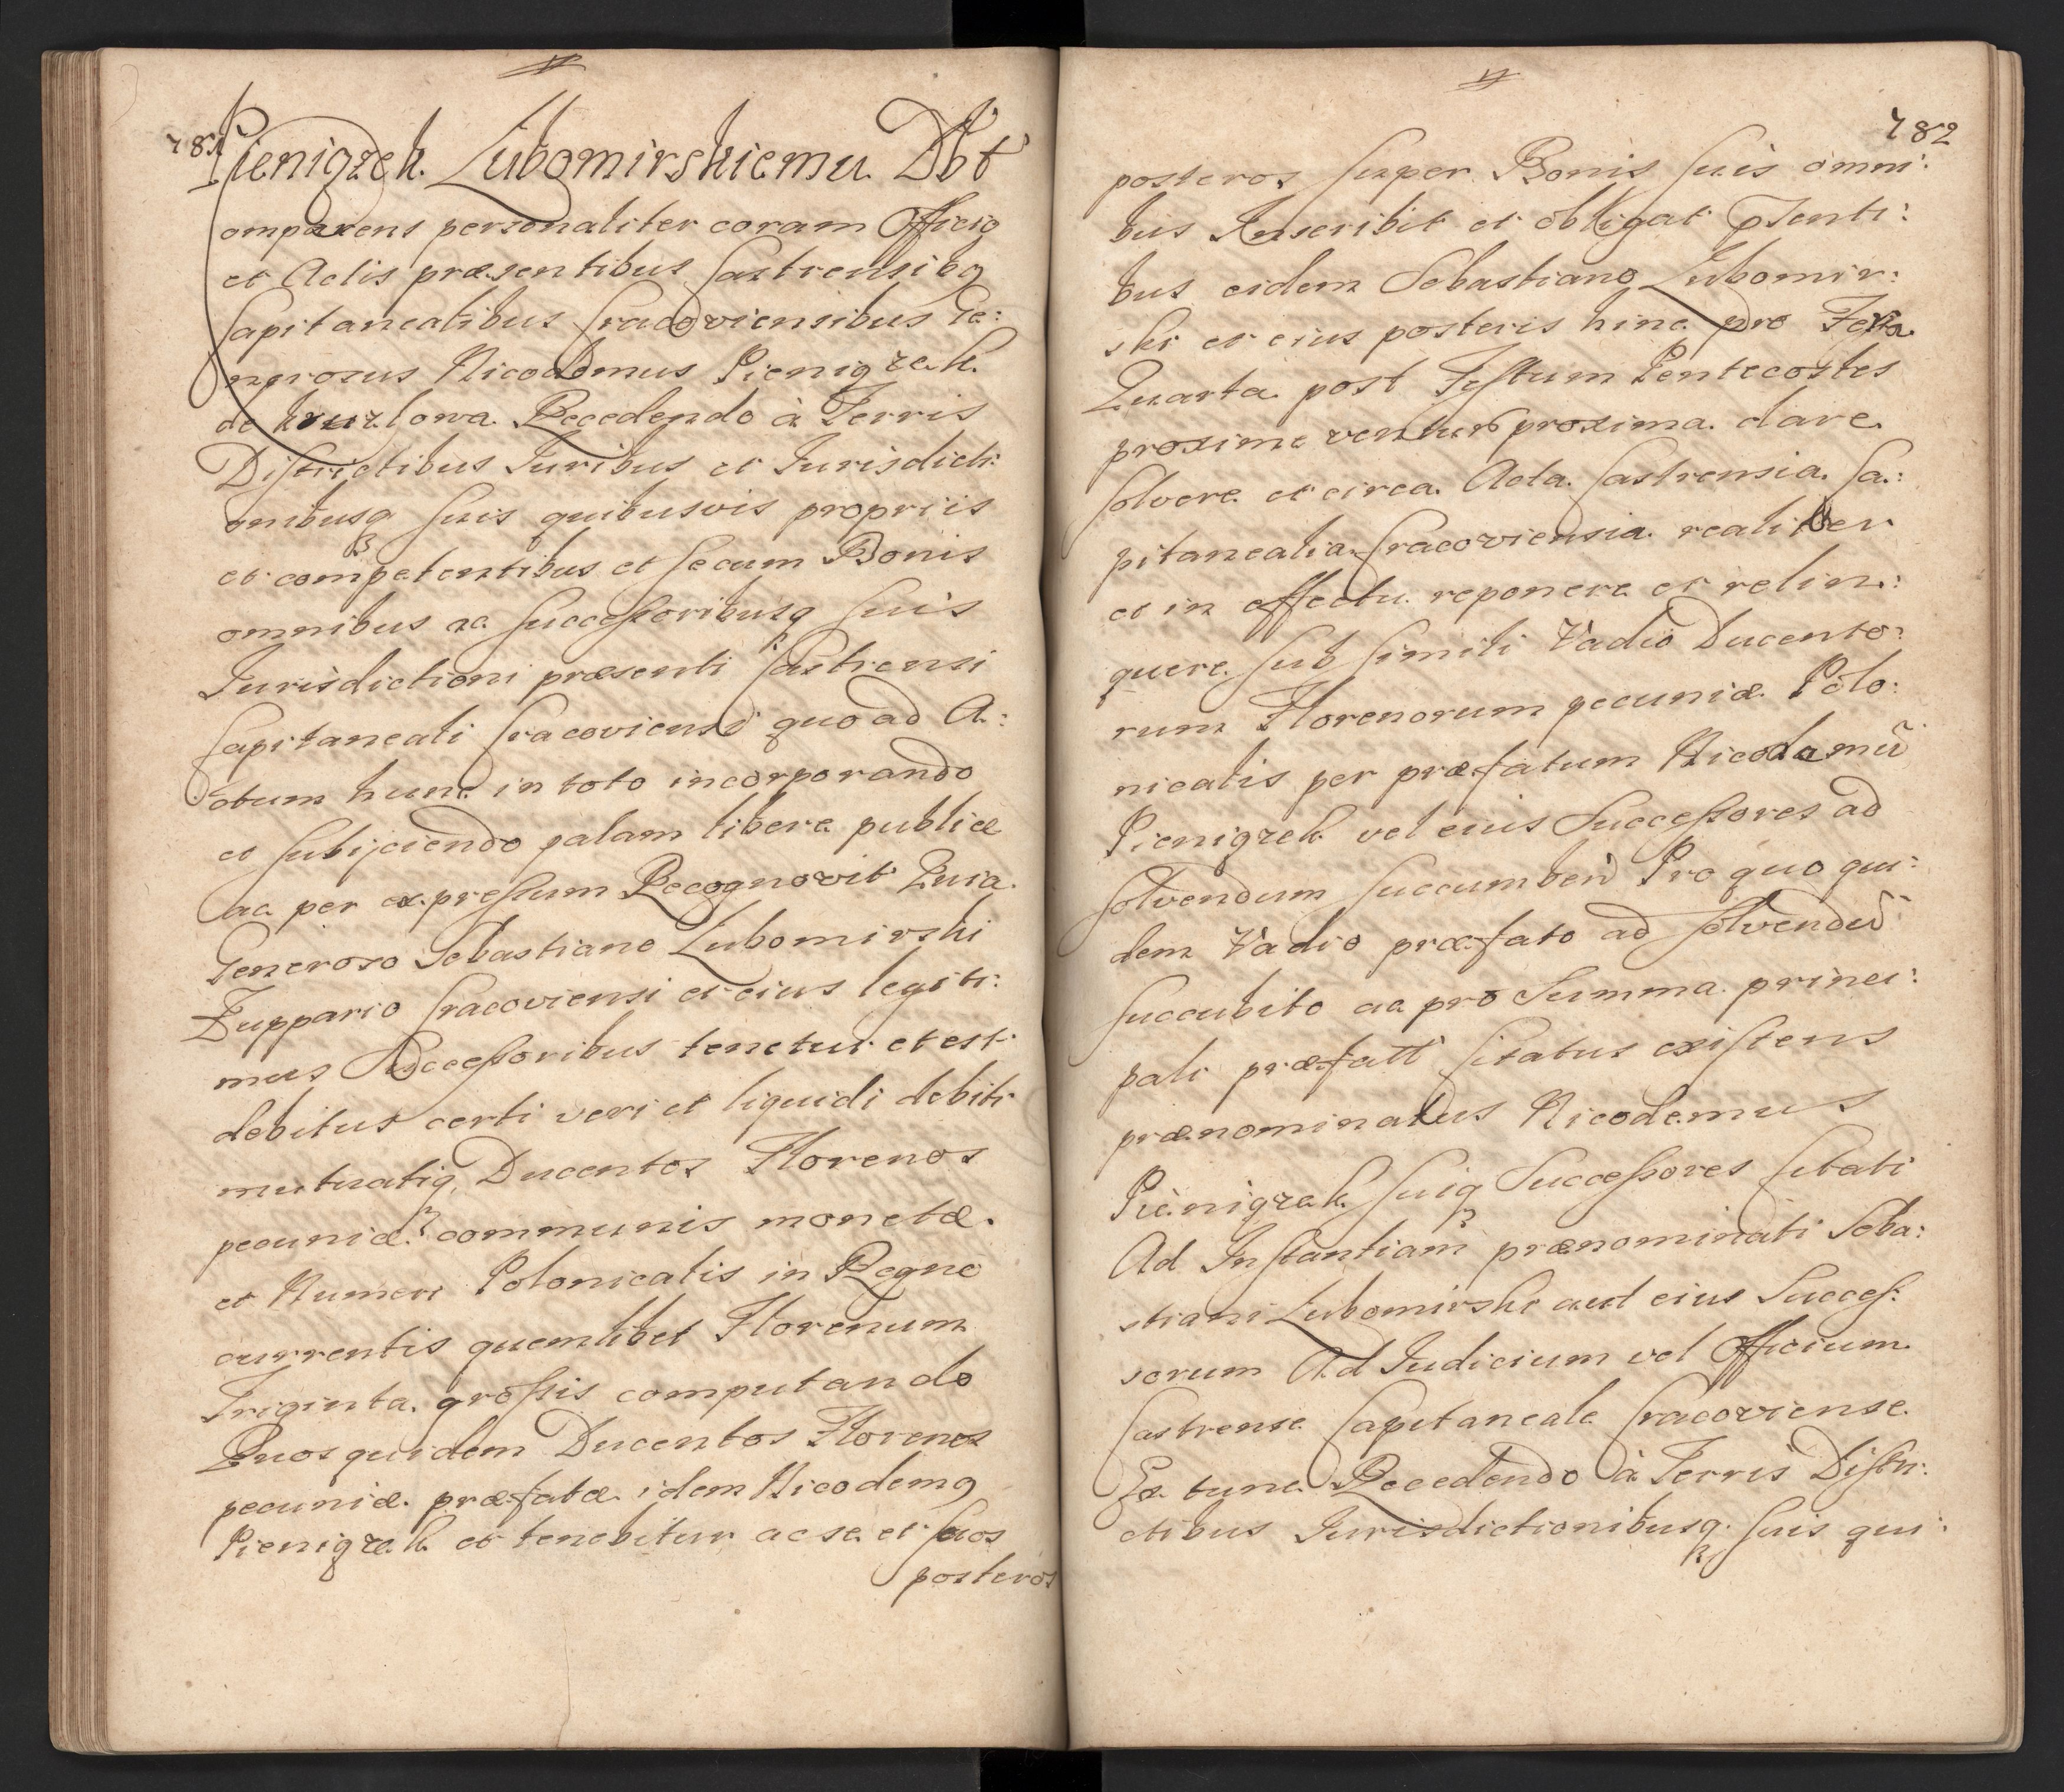 781
Pieniązek Lubomirskiemu Dbt
Comparens personaliter coram Officiq
et Actis præsentibus Castrensibq
Capitanealibus Cracoviensibus Ge:
nerosus Nicodemus Pieniązek
de Kruzlowa Recedendo à Terris
Districtibus Iuribus et Iurisdicti:
onibusq suis quibusvis propriis
et competentibus et secum Bonis
omnibus ac Successoribusq suis
Iurisdictioni præsenti Castrensi
Capitaneali Cracoviensi quo ad A:
ctum hunc in toto incorporando
et subijciendo palam libere publice
ac per expressum Recognovit Quia
Generoso Sebastiano Lubomirski
Zuppario Cracoviensi et eius legiti:
mus Successoribus tenetur et est
debitus certi veri et liquidi debiti
mutuatiq Ducentos Florenos
pecuniæ communis monetæ
et Numeri Polonicalis in Regno
currentis quemlibet Florenum
Triginta grossis computando
Quos quidem Ducentos Florenos
pecuniæ præfatæ idem Nicodemq
Pieniązek et tenebitur ac se et suos
posteros
782
posteros super Bonis suis omni:
bus Inscribit et obligat psenti:
bus eidem Sebastiano Lubomir:
ski et eius posteris hinc pro Feria
Quarta post Festum Pentecostes
proxime ventur proxima dare
solvere et circa Acta Castrensia Ca:
pitanealia Cracoviensia realiter
et in effectu reponere et relin:
quere sub simili Vadio Ducento:
rum Florenorum pecuniæ Polo:
nicalis per præfatum Nicodemū
Pieniązek vel eius Successores ad
solvendum succumben Pro quo qui:
dem Vadio præfato ad solvendū
succubito ac pro Summa princi:
pali præfatt Citatus existens
prænominatus Nicodemus
Pieniązek suiq Successores Citati
Ad Instantiam prænominati Seba:
stiani Lubomirski aut eius Succes:
sorum Ad Iudicium vel Officium
Castrense Capitaneale Cracoviense
Ex tunc Recedendo à Terris Distri:
ctibus Iurisdictionibusq suis qui: